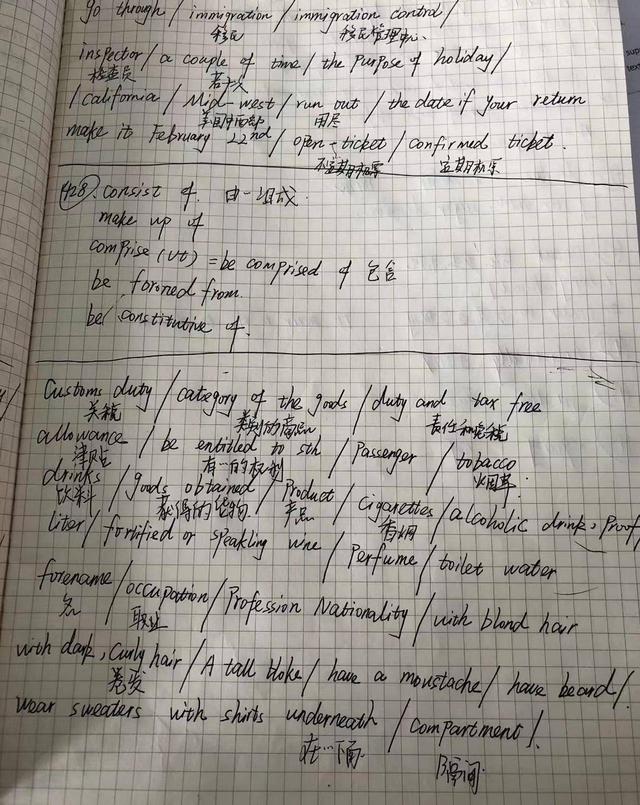 go through / immigration / immigration control /
移民 移民管理中心.
inspector / a couple of time / the purpose of holiday /
检查员 若干次
/ California / Mid-west / run out / the date if your return
美国中西部 用尽
make it February 22nd / open-ticket / confirmed ticket.
不定期机票 定期机票
428. consist of. 由一组成.
make up of
comprise (vt) = be comprised of 包含
be foroned from.
be constitutive of.
Customs duty / category of the goods / duty and tax free
关税 类别的商品 责任和免税
allowance / be entitled to sth / Passenger / tobacco
津贴 有…的权利 烟草
drinks / goods obtained / Product / cigarettes / alcoholic drink, Proof/
饮料 获得的货物 产品 香烟
liter / fortified or speakling wine / Perfume / toilet water
forename / occupation / Profession Nationality / with blond hair
名 职业
with dark, Curly hair / A tall bloke / have a moustache / have beard /
卷发
wear sweaters with shirts underneath / compartment /.
在…下面. 隔间